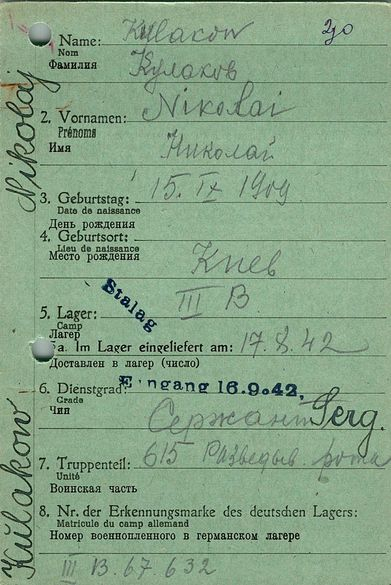 290
Name: Kulakow
Nom
Фамилия Кулаков
2. Vornamen: Nikolai
Prénoms
Имя Николай
3. Geburtstag: 15. IX 1909
Date de naissance
День рождения
4. Geburtsort:
Lieu de naissance
Место рождения Киев
5. Lager: III B
Camp
Лагерь
Stalag
5a. Im Lager eingeliefert am: 17.8.42
Доставлен в лагерь (число)
Eingang 16.9.42.
6. Dienstgrad:
Grade
Чин Сержант Serg.
7. Truppenteil: 615 Разведыв. рота
Unité
Воинская часть
8. Nr. der Erkennungsmarke des deutschen Lagers:
Matricule du camp allemand
Номер военнопленного в германском лагере
III B. 67632
Kulakow Nikolaj